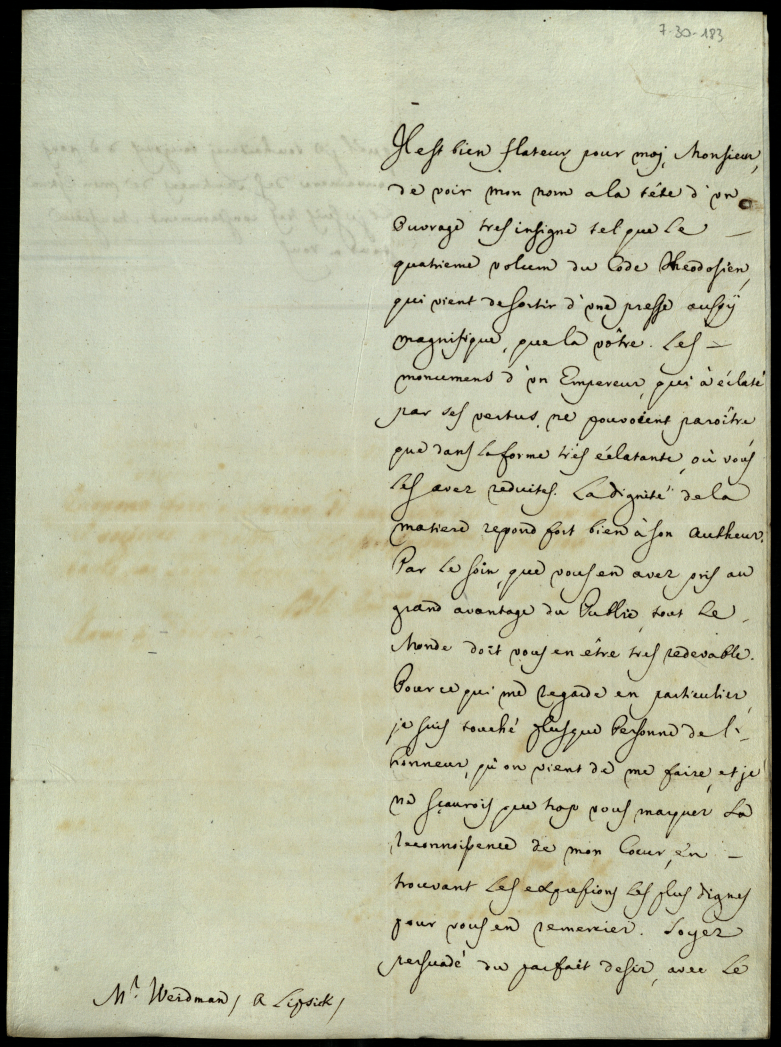 7-30-183
Il est bien flateur pour moy, Monsieur,
de voir mon nom a la tête d'un
Ouvrage tres insigne tel que Le
quatrieme volum du Code Theodosien,
qui vient de sortir d'une presse aussÿ
magnifique, que la vôtre. Les
monumens d'un Empereur, qui à éclaté
par ses vertus, ne pouvoient paroître
que dans la forme trés éclatante, où vous
Les avez reduites. La dignité de la
matiere repond fort bien à son Autheur.
Par Le soin, que vous en avez pris au
grand avantage du Public, tout Le
Monde doit vous en être tres redevable.
Pour ce qui me regarde en particulier,
je suis touché plus que Personne de l'
honneur, qu'on vient de me faire, et je
ne sçaurois que trop vous marquer La
reconnoissence de mon Coeur, en
trouvant Les expressions Les plus dignes
pour vous en remercier. Soyez
persuadé du parfait desir, avec Le
Mr. Weidman / A Lipsick /